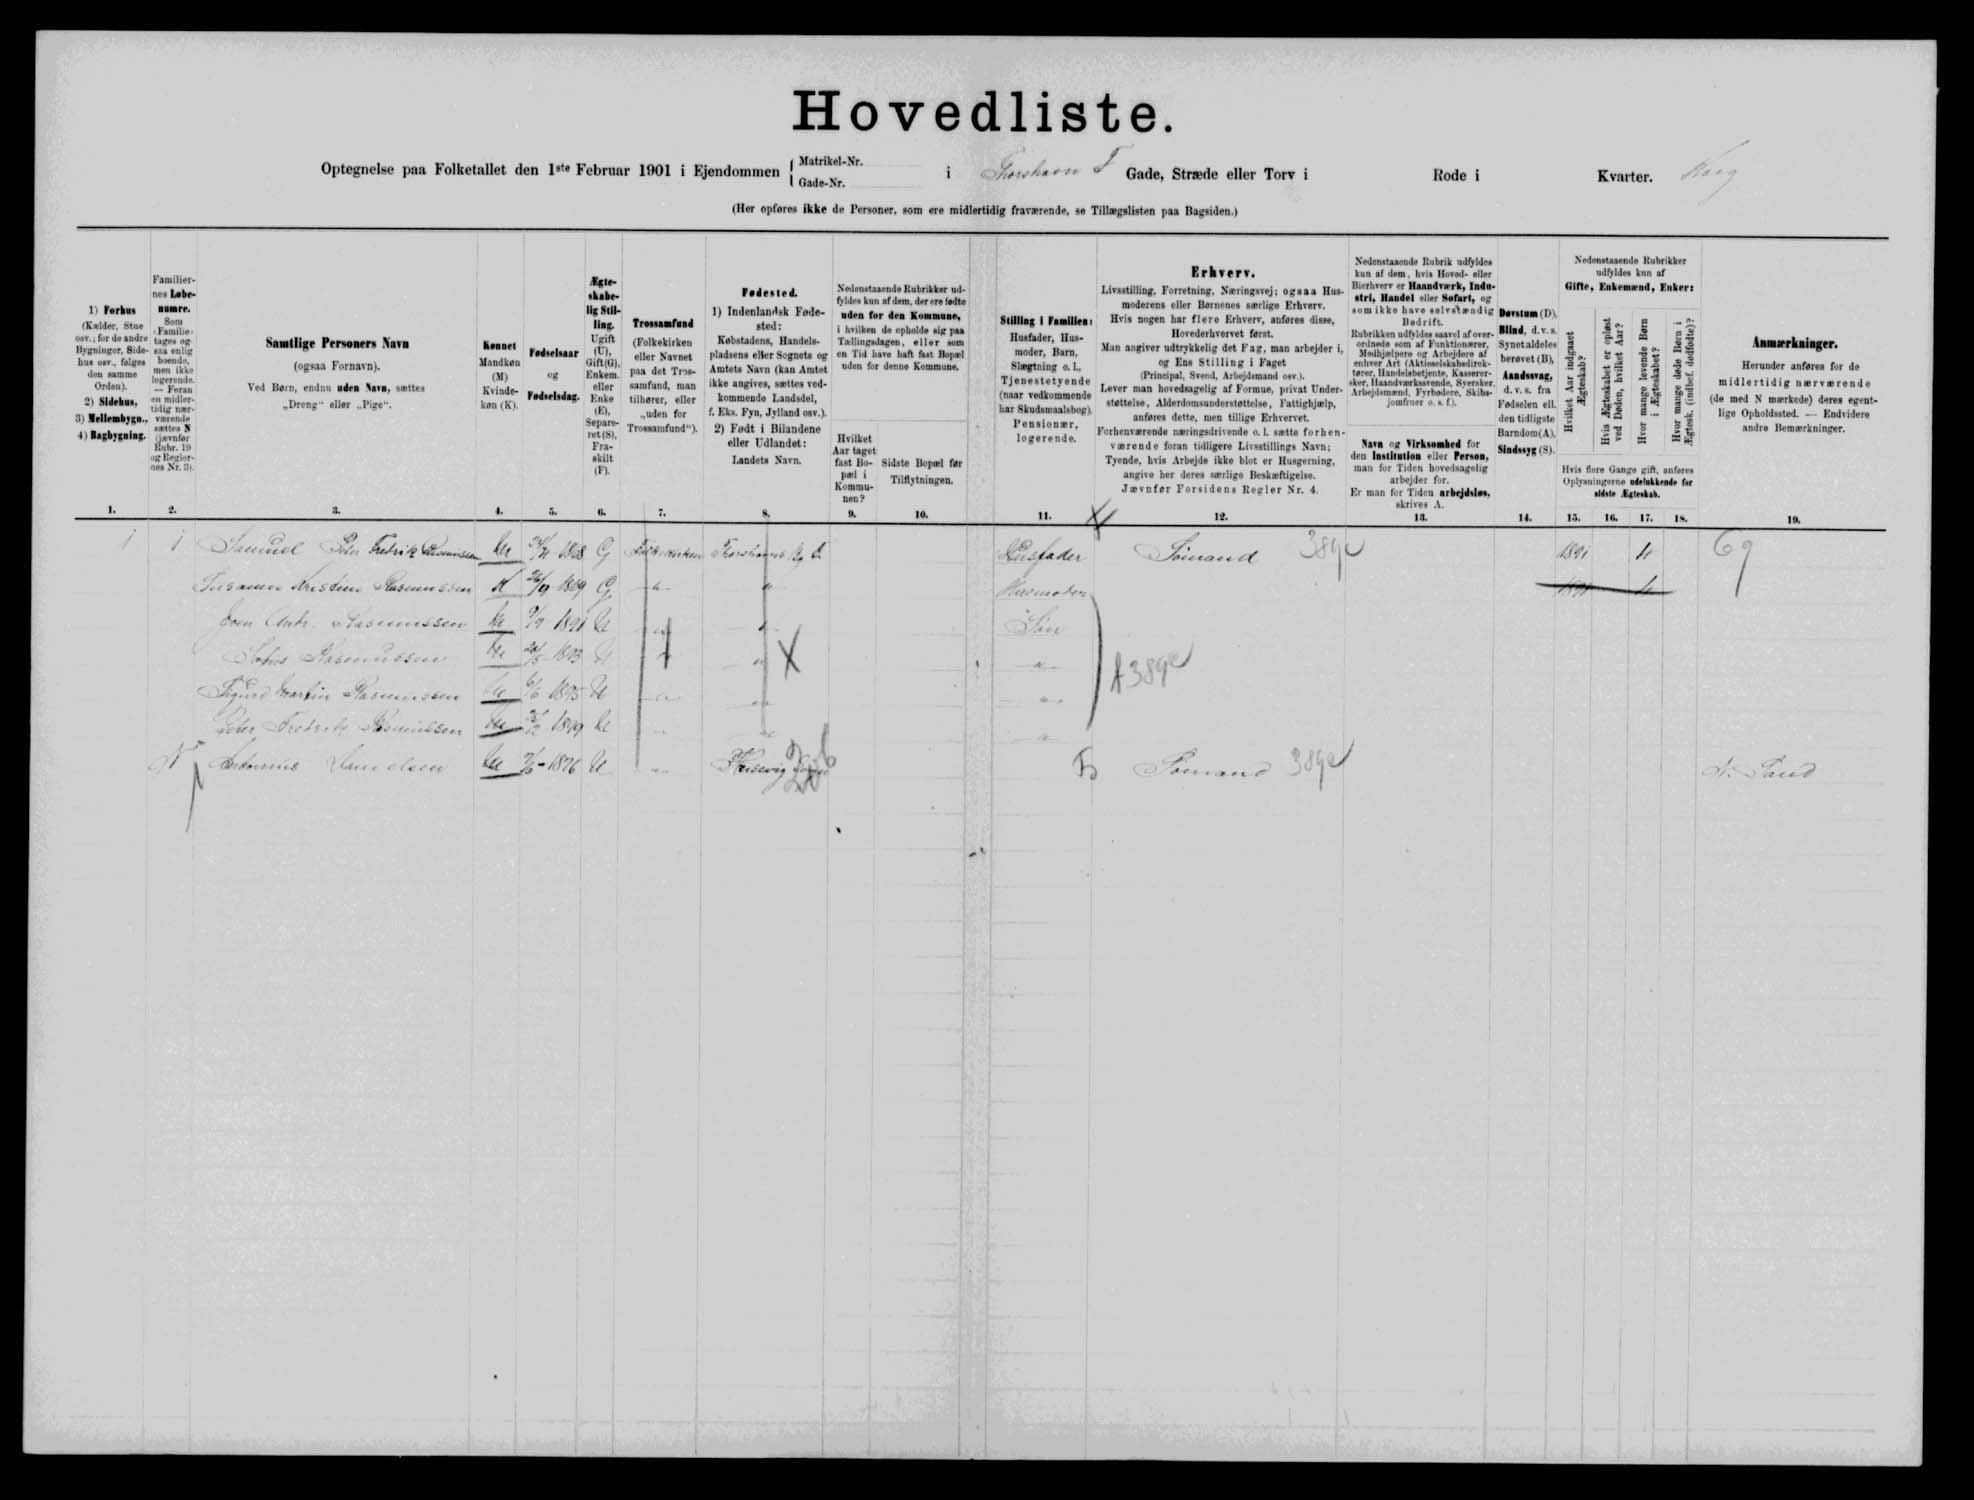 Hovedliste.
Optegnelse paa Folketallet den 1ste Februar 1901 i Ejendommen { Matrikel-Nr. Gade-Nr. i Thorshavn Gade, Stræde eller Torv i Rode i Kvarter.
(Her opføres ikke de Personer, som ere midlertidig fraværende, se Tillægslisten paa Bagsiden.)
1) Forhus (Kælder, Stue osv.; for de andre Bygninger, Sidehus osv., følges den samme Orden). 2) Sidehus, 3) Mellembygn., 4) Bagbygning.
Familiernes Løbenumre. Som ›Familie‹ tages ogsaa enlig boende, men ikke logerende. — Foran en midlertidig nærværende sættes N (jævnfør Rubr. 19 og Reglernes Nr. 3).
Samtlige Personers Navn (ogsaa Fornavn). Ved Børn, endnu uden Navn, sættes „Dreng“ eller „Pige“.
Kønnet Mandkøn (M) Kvindekøn (K).
Fødselsaar og Fødselsdag.
Ægteskabelig Stilling. Ugift (U), Gift (G), Enkem. eller Enke (E), Separeret (S), Fraskilt (F).
Trossamfund (Folkekirken eller Navnet paa det Trossamfund, man tilhører, eller „uden for Trossamfund“).
Fødested. 1) Indenlandsk Fødested: Købstadens, Handelspladsens eller Sognets og Amtets Navn (kan Amtet ikke angives, sættes vedkommende Landsdel, f. Eks. Fyn, Jylland osv.). 2) Født i Bilandene eller Udlandet: Landets Navn.
Nedenstaaende Rubrikker udfyldes kun af dem, der ere fødte uden for den Kommune, i hvilken de opholde sig paa Tællingsdagen, eller som en Tid have haft fast Bopæl uden for denne Kommune.
Hvilket Aar taget fast Bopæl i Kommunen?
Sidste Bopæl før Tilflytningen.
Stilling i Familien: Husfader, Husmoder, Barn, Slægtning o. l., Tjenestetyende (naar vedkommende har Skudsmaalsbog), Pensionær, logerende.
Erhverv.
Livsstilling, Forretning, Næringsvej; ogsaa Husmoderens eller Børnenes særlige Erhverv.
Hvis nogen har flere Erhverv, anføres disse, Hovederhvervet først.
Man angiver udtrykkelig det Fag, man arbejder i, og Ens Stilling i Faget (Principal, Svend, Arbejdsmand osv.).
Lever man hovedsagelig af Formue, privat Understøttelse, Alderdomsunderstøttelse, Fattighjælp, anføres dette, men tillige Erhvervet.
Forhenværende næringsdrivende o. l. sætte forhenværende foran tidligere Livsstillings Navn; Tyende, hvis Arbejde ikke blot er Husgerning, angive her deres særlige Beskæftigelse.
Jævnfør Forsidens Regler Nr. 4.
Nedenstaaende Rubrik udfyldes kun af dem, hvis Hoved- eller Bierhverv er Haandværk, Industri, Handel eller Søfart, og som ikke have selvstændig Bedrift.
Rubrikken udfyldes saavel af overordnede som af Funktionærer, Medhjælpere og Arbejdere af enhver Art (Aktieselskabsdirektører, Handelsbetjente, Kassererersker, Haandværkssvende, Syersker, Arbejdsmænd, Fyrbødere, Skibsjomfruer o. s. f.).
Navn og Virksomhed for den Institution eller Person, man for Tiden hovedsagelig arbejder for.
Er man for Tiden arbejdsløs, skrives A.
Døvstum (D), Blind, d. v. s. Synet aldeles berøvet (B), Aandssvag, d. v. s. fra Fødselen ell. den tidligste Barndom (A), Sindssyg (S).
Nedenstaaende Rubrikker udfyldes kun af Gifte, Enkemænd, Enker:
Hvilket Aar indgaaet Ægteskab?
Hvis Ægteskabet er opløst ved Døden, hvilket Aar?
Hvor mange levende Børn i Ægteskabet?
Hvor mange døde Børn i Ægtesk. (indbef. dødfødte)?
Hvis flere Gange gift, anføres Oplysningerne udelukkende for sidste Ægteskab.
Anmærkninger.
Herunder anføres for de midlertidig nærværende (de med N mærkede) deres egentlige Opholdssted. — Endvidere andre Bemærkninger.
1. 2. 3. 4. 5. 6. 7. 8. 9. 10. 11. 12. 13. 14. 15. 16. 17. 18. 19.
1 1 Samuel Peter Fredrik Rasmussen M 1868 G Folkekirken Thorshavn Husfader Sømand 389e 1891 4 69
Susanne Kristine Rasmussen K 26/9 1869 G " " Husmoder 1891 4
Joen Rasmussen M 1891 U " " Søn
Rasmussen M 1893 U " " " 389e
Sigurd Martin Rasmussen M 1895 U " " "
Peter Fredrik Rasmussen M 1899 U " " "
N Antonius M 1876 U " Sømand 389e Sand